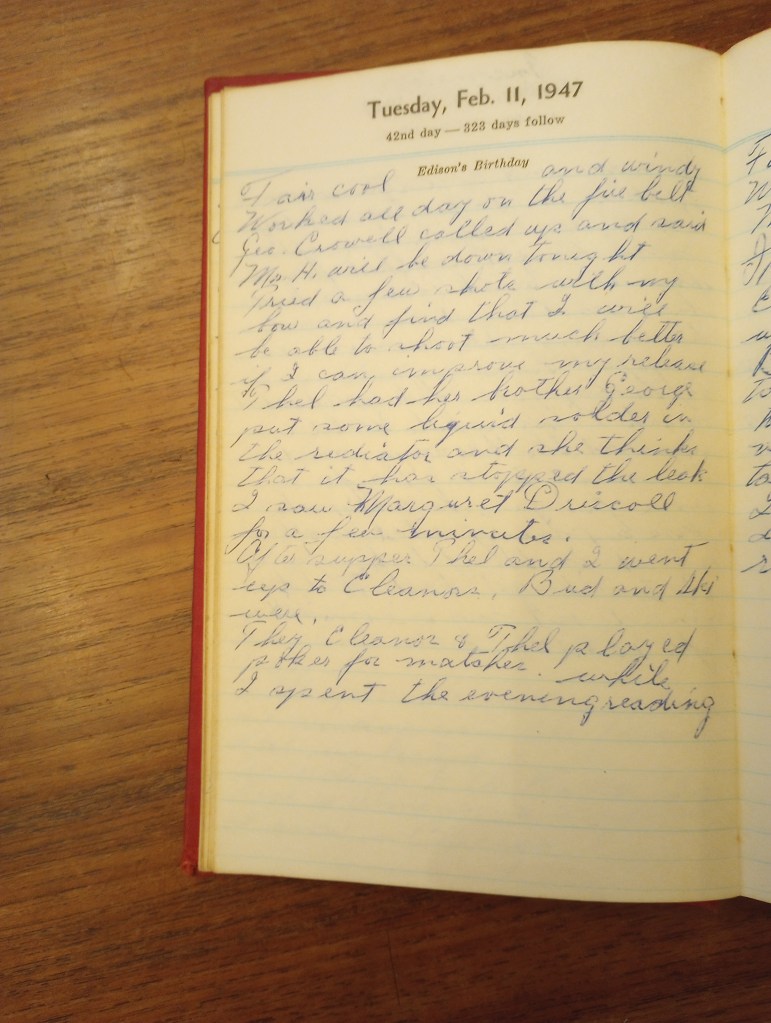 Tuesday, Feb. 11, 1947
42nd day — 323 days follow
Edison's Birthday
Fair cool and windy
Worked all day on the five belt
Geo. Crowell called up and said
Mr H. will be down tonight
Tried a few shots with my
bow and find that I will
be able to shoot much better
if I can improve my release
Thel had her brother George
put some liquid solder in
the radiator and she thinks
that it has stopped the leak
I saw Margaret Driscoll
for a few minutes.
After supper Thel and I went
up to Eleanors, Bud and Ski
were.
They, Eleanor & Thel played
poker for matches. while
I spent the evening reading